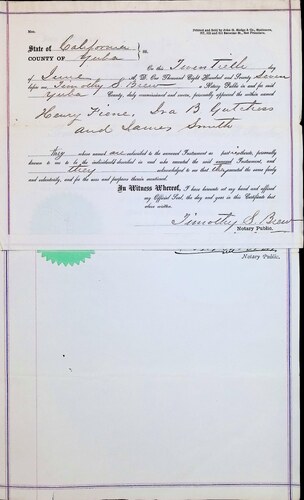 State of California } ss.
COUNTY OF Yuba
On this Twentieth day
of June A. D. One Thousand Eight Hundred and Seventy Seven
before me Timothy S Brew a Notary Public in and for said
Yuba County, duly commissioned and sworn, personally appeared the within named
Henry Fiene, Ira B Gutchess
and James Smith
they whose names are subscribed to the annexed Instrument as parties thereto, personally
known to me to be the individuals described in and who executed the said annexed Instrument, and
they acknowledged to me that they executed the same freely
and voluntarily, and for the uses and purposes therein mentioned.
In Witness Whereof, I have hereunto set my hand and affixed
my Official Seal, the day and year in this Certificate first
above written.
Timothy S. Brew
Notary Public.
Notary Public.